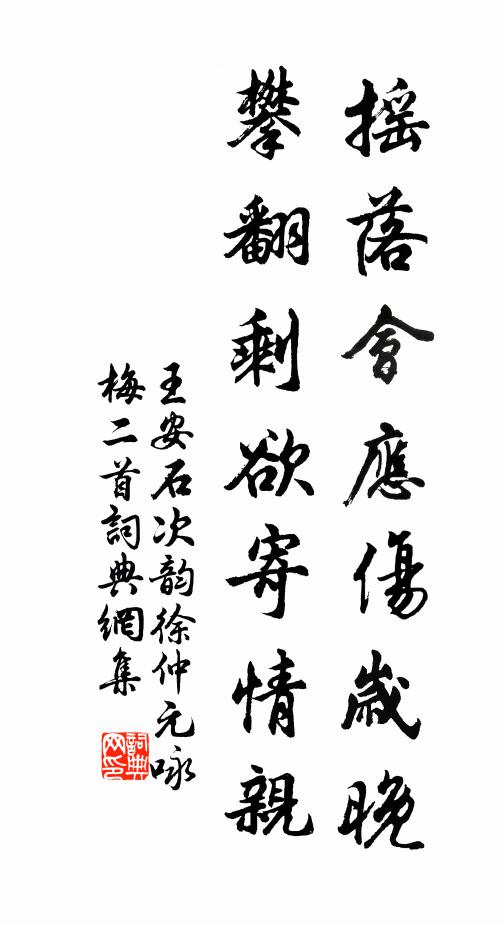 摇落會應傷歲晚
攀翻剩欲寄情親
王安石次韵徐仲元咏
梅二首詞典網集
詞典
网印